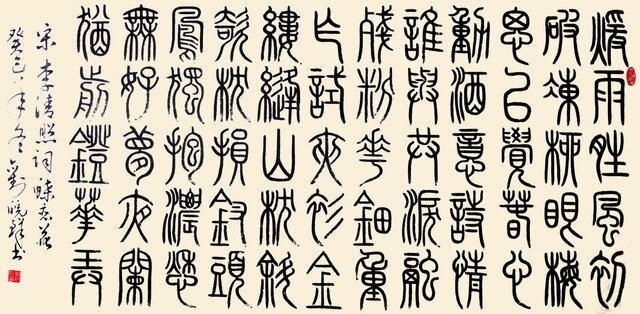 煖雨晴風初
破凍柳眼梅
思已覺春心
動酒意詩情
誰與共淚融
殘粉華鈿重
乍試夾衫金
縷縫山枕斜
欹枕損釵頭
鳳獨抱濃愁
無好夢夜闌
猶剪鐙華弄
宋李清照词蝶恋花
癸巳年冬劉晓